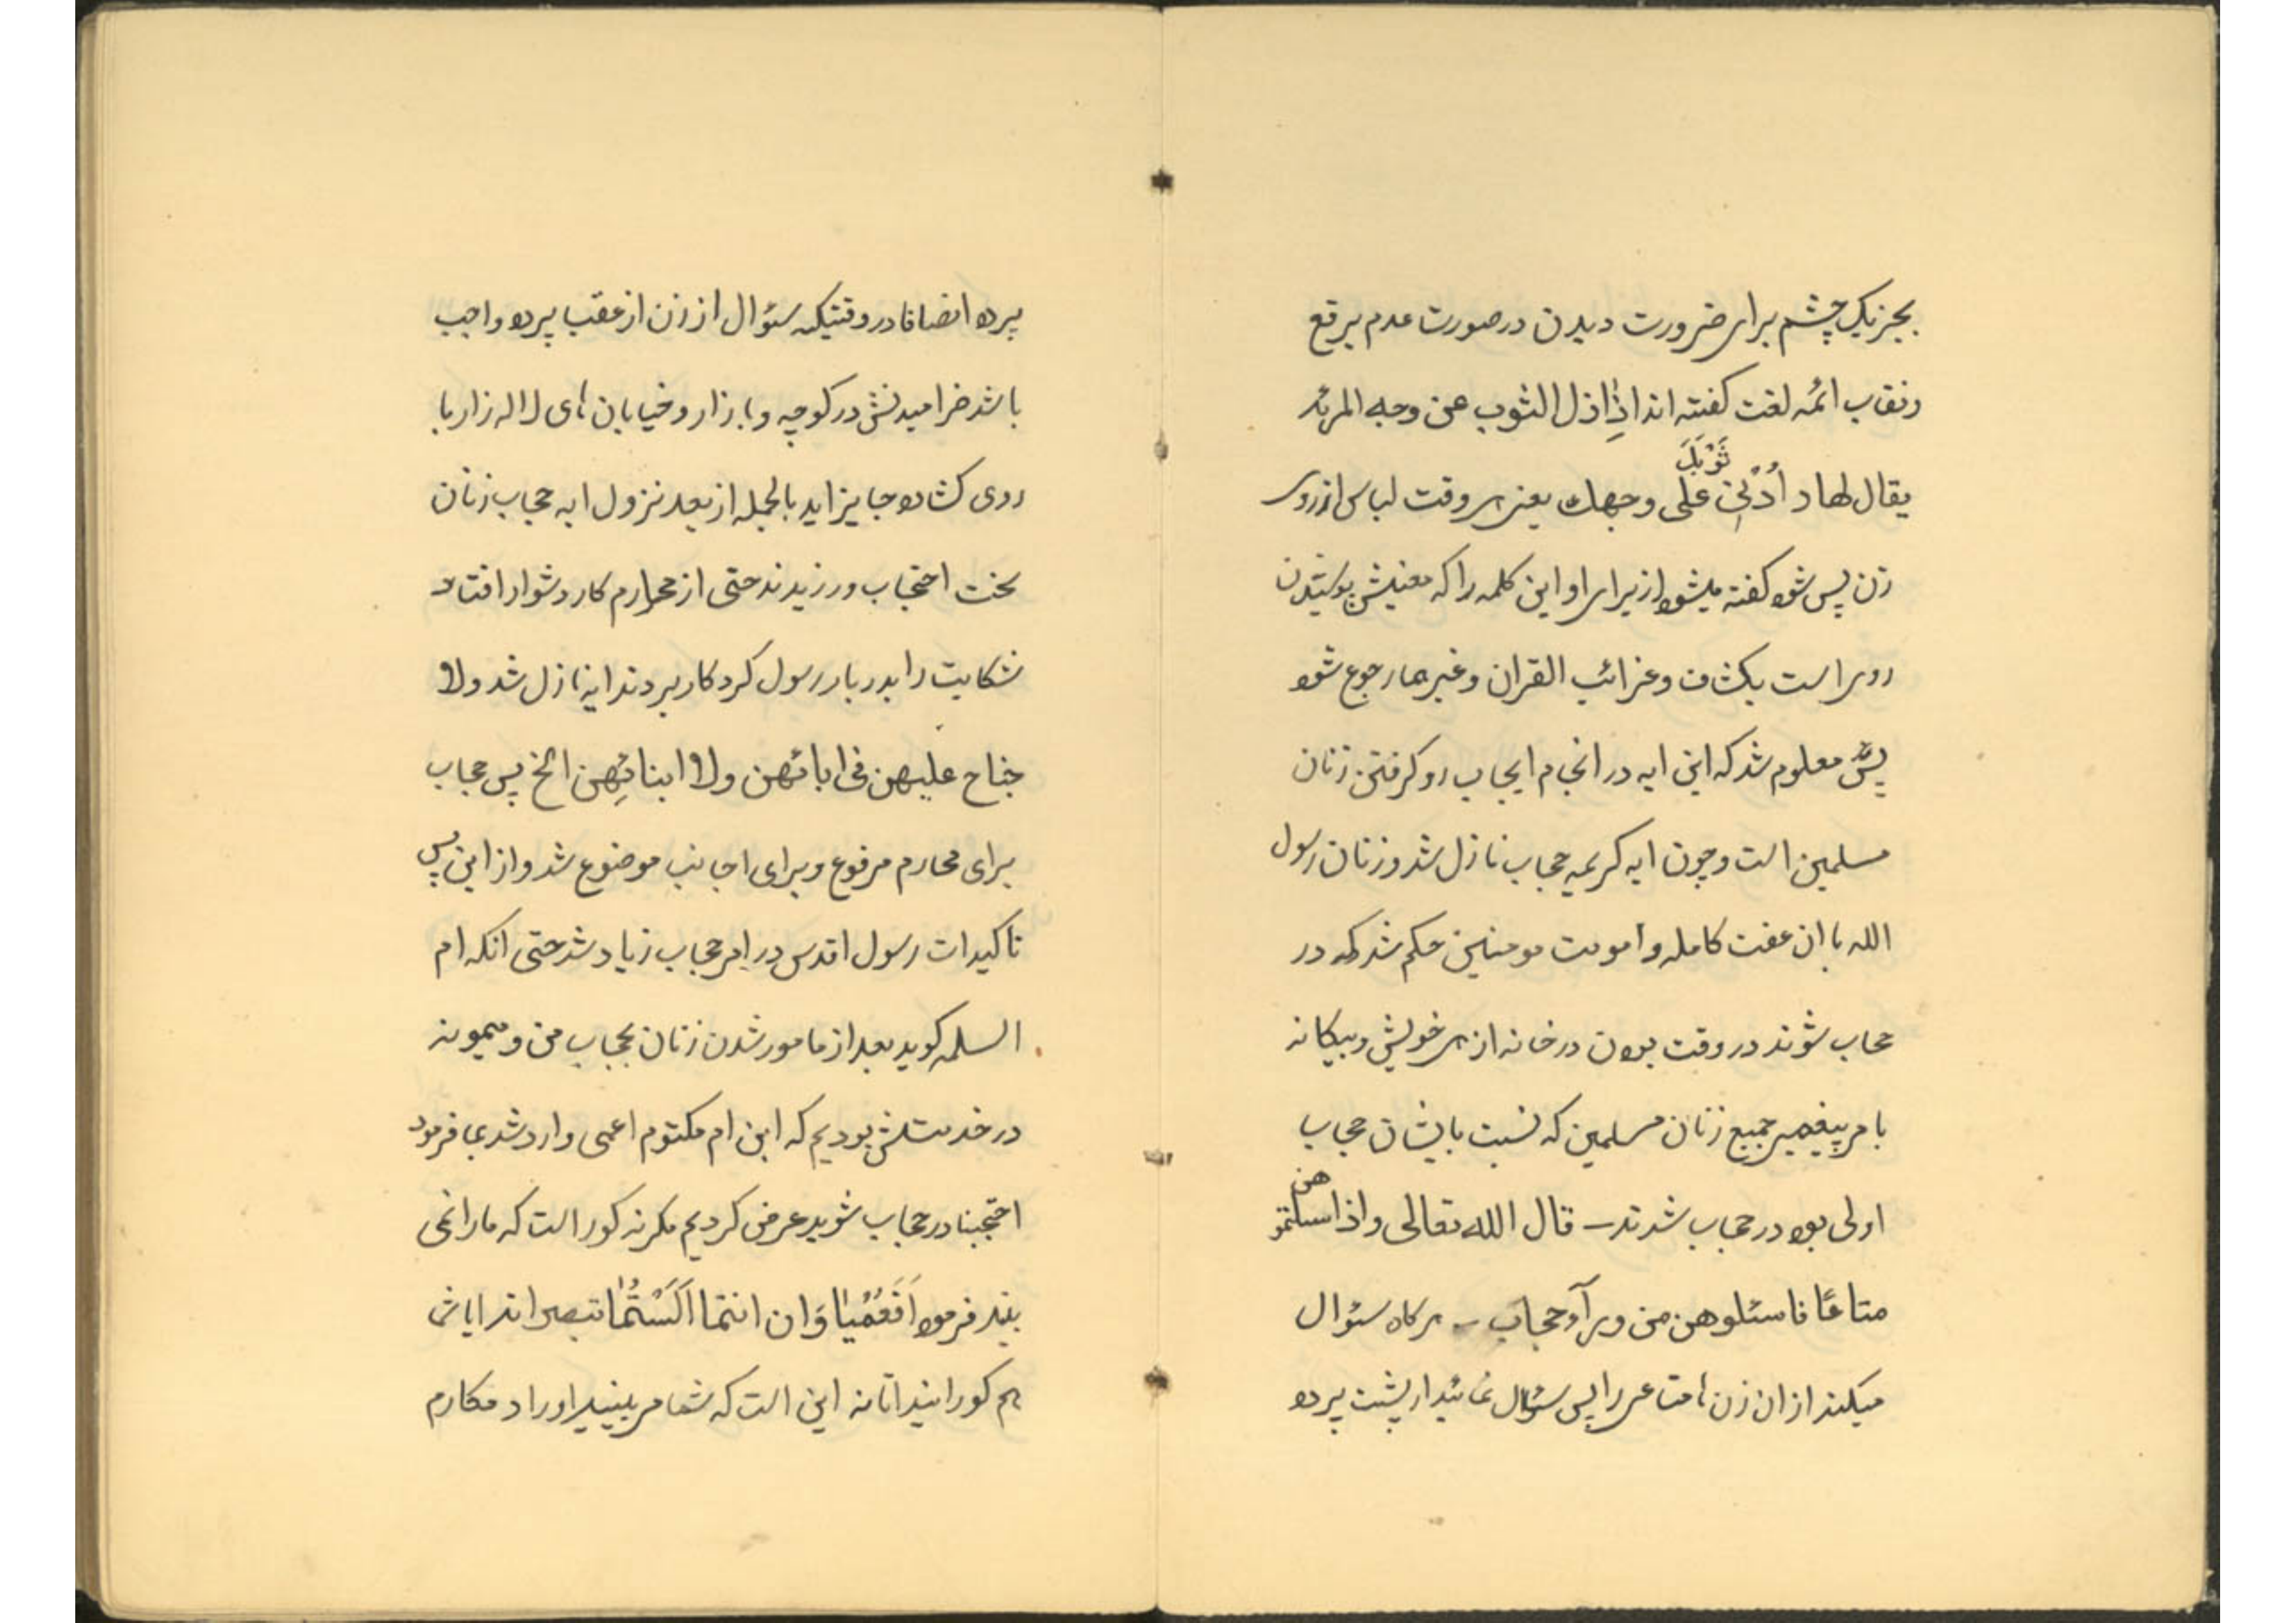 بجز یک چشم برای ضرورت دیدن در صورت عدم برقع
ونقاب ائمه لغت کفته اند اذا ذل الثوب عن وجه المرئه
یقال لها د اُدْنِی ثَوْبَكَ علی وجهك یعنی هر وقت لباس از روی
زن پس شود کفته میشود از برای او این کلمه را که معنیش پوشیدن
روی است بکشاف وغرائب القران وغیرها رجوع شود
پس معلوم شد که این ایه در انجام ایجاب رو کرفتن زنان
مسلمین است وچون ایه کریمه حجاب نازل شد وزنان رسول
الله با ان عفت کامله وامومت مومنین حکم شد که در
حجاب شوند در وقت بودن در خانه از هر خویش وبیکانه
بامر پیغمبر جمیع زنان مسلمین که نسبت بایشان حجاب
اولی بود در حجاب شدند – قال الله تعالی واذا سئلتموهن
متاعًا فاسئلوهن من ورآء حجاب – هر کاه سئوال
میکنید از ان زن ها متاعی را پس سئوال نمائید از پشت پرده
پرده انصافا در وقتیکه سئوال از زن از عقب پرده واجب
باشد خرامیدنش در کوچه وبازار وخیابان های لاله زار با
روی کشاده جایز اید بالجمله از بعد نزول ایه حجاب زنان
سخت احتجاب ورزیدند حتی از محارم کار دشوار افتاد
شکایت را بدربار رسول کردکار بردند ایه نازل شد ولا
جناح علیهن فی ابائهن ولا ابنائهن الخ پس حجاب
برای محارم مرفوع وبرای اجانب موضوع شد واز این پس
تاکیدات رسول اقدس در امر حجاب زیاد شد حتی انکه ام
السلمه کوید بعد از مامور شدن زنان بحجاب من ومیمونه
در خدمتش بودیم که ابن ام مکتوم اعمی وارد شد بما فرمود
احتجبنا در حجاب شوید عرض کردیم مکر نه کور است که مارا نمی
بیند فرمود اَفَعُمْیٰا وَان انتما اَلَسْتُمٰا تبصرانه ایا شما
هم کورانید ایا نه این است که شما می بینید اورا د مکارم